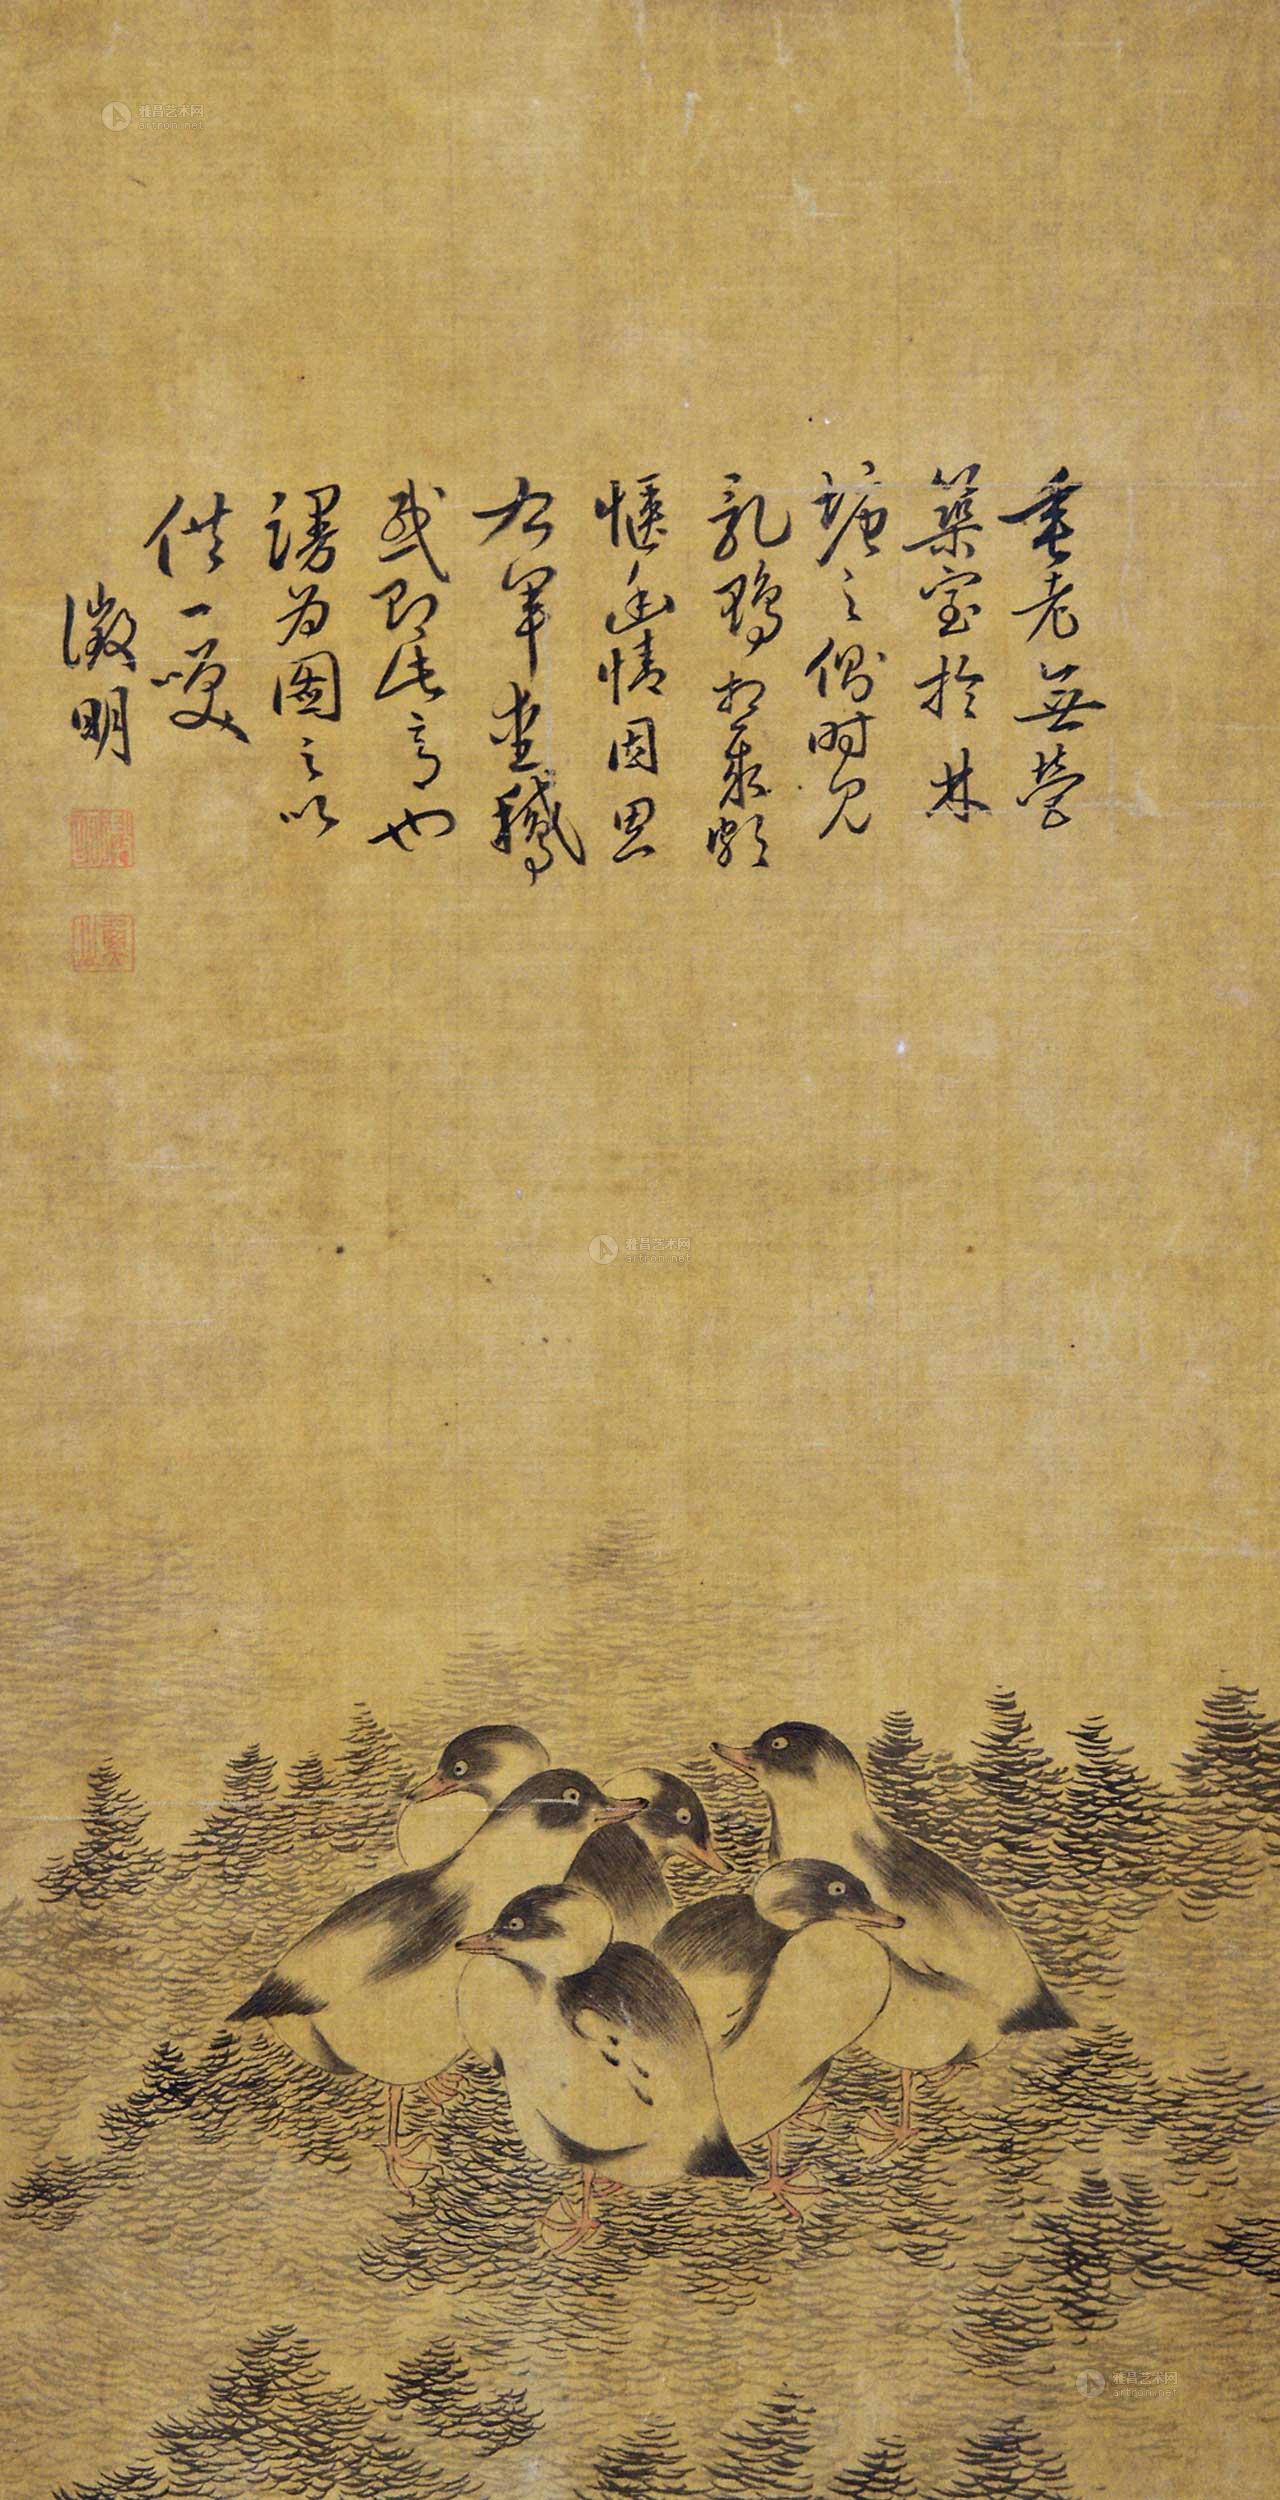 垂老無營
築室於林
塘之偶时见
乳鴨相聚頗
惬幽情因思
右軍重鵝
或即此意也
謾为圖之以
供一笑
徵明
雅昌艺术网
artron.net
雅昌艺术网
artron.net
雅昌艺术网
artron.net